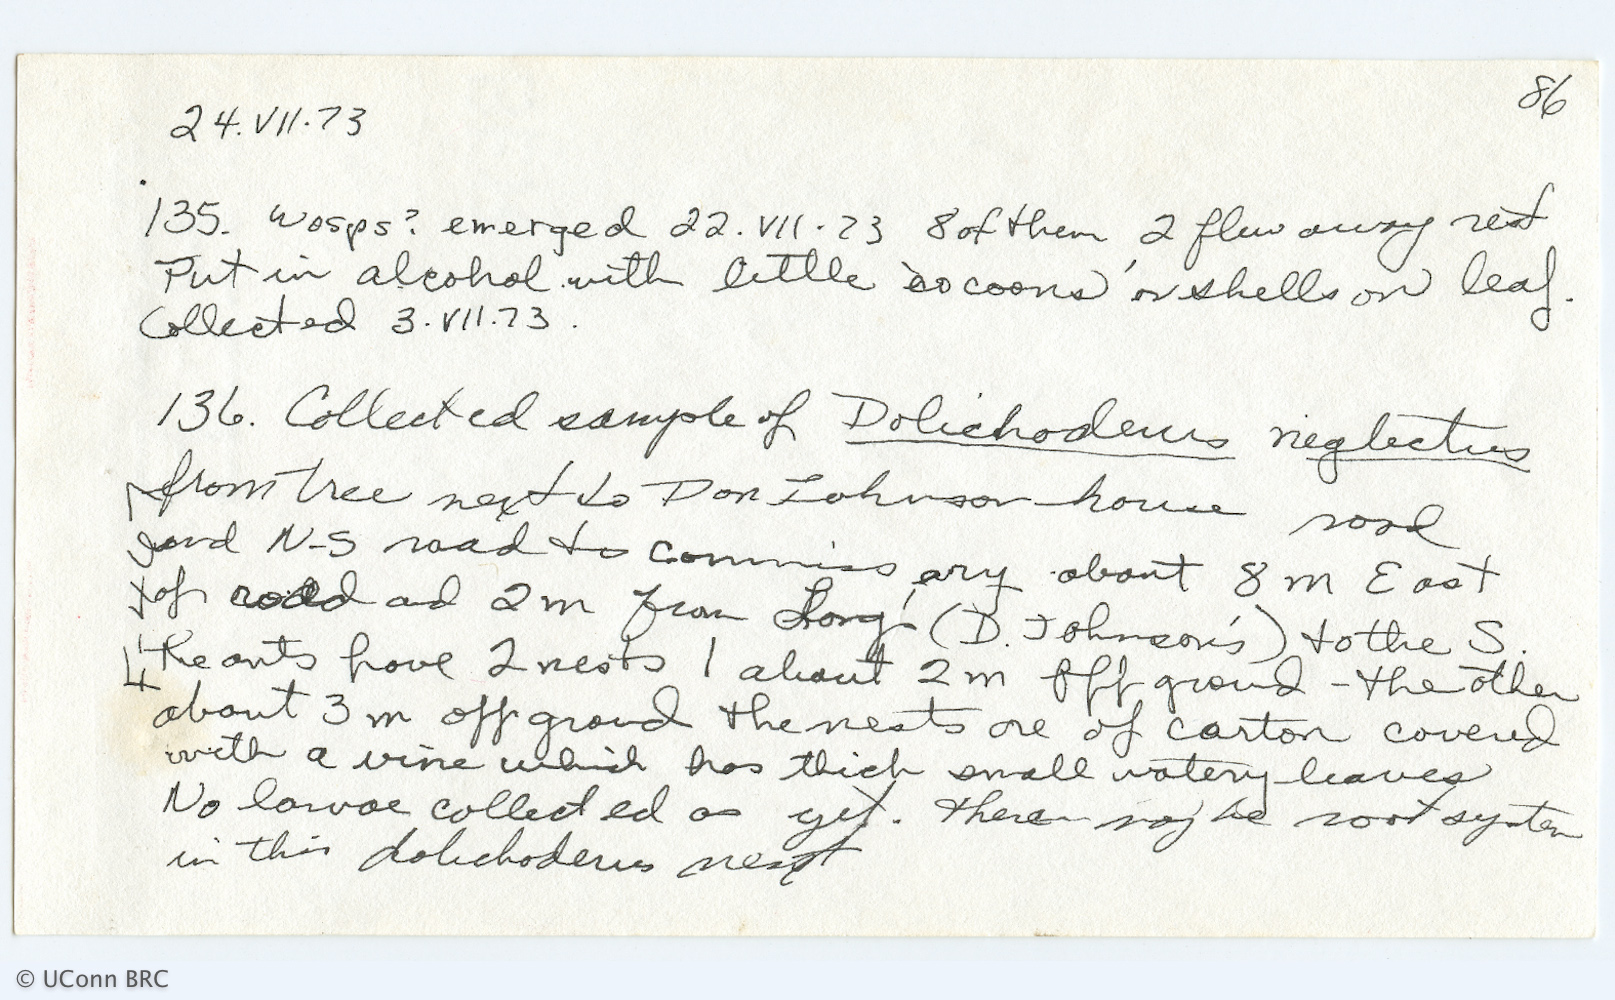 86
24.VII.73
135. Wosps? emerged 22.VII.73 8 of them 2 flew away rest
Put in alcohol with little 'cocoons' or shells on leaf.
Collected 3.VII.73.
136. Collected sample of Dolichoderus neglectus
from tree next to Don Johnson house road
and N-S road to commissary about 8 m East
of road ad 2 m from (D. Johnson's) to the S.
the ants have 2 nests 1 about 2 m off ground - the other
about 3 m off ground the nests are of carton covered
with a vine which has thick small watery leaves
No larvae collected as yet. There may be root system
in this dolichoderus nest
© UConn BRC